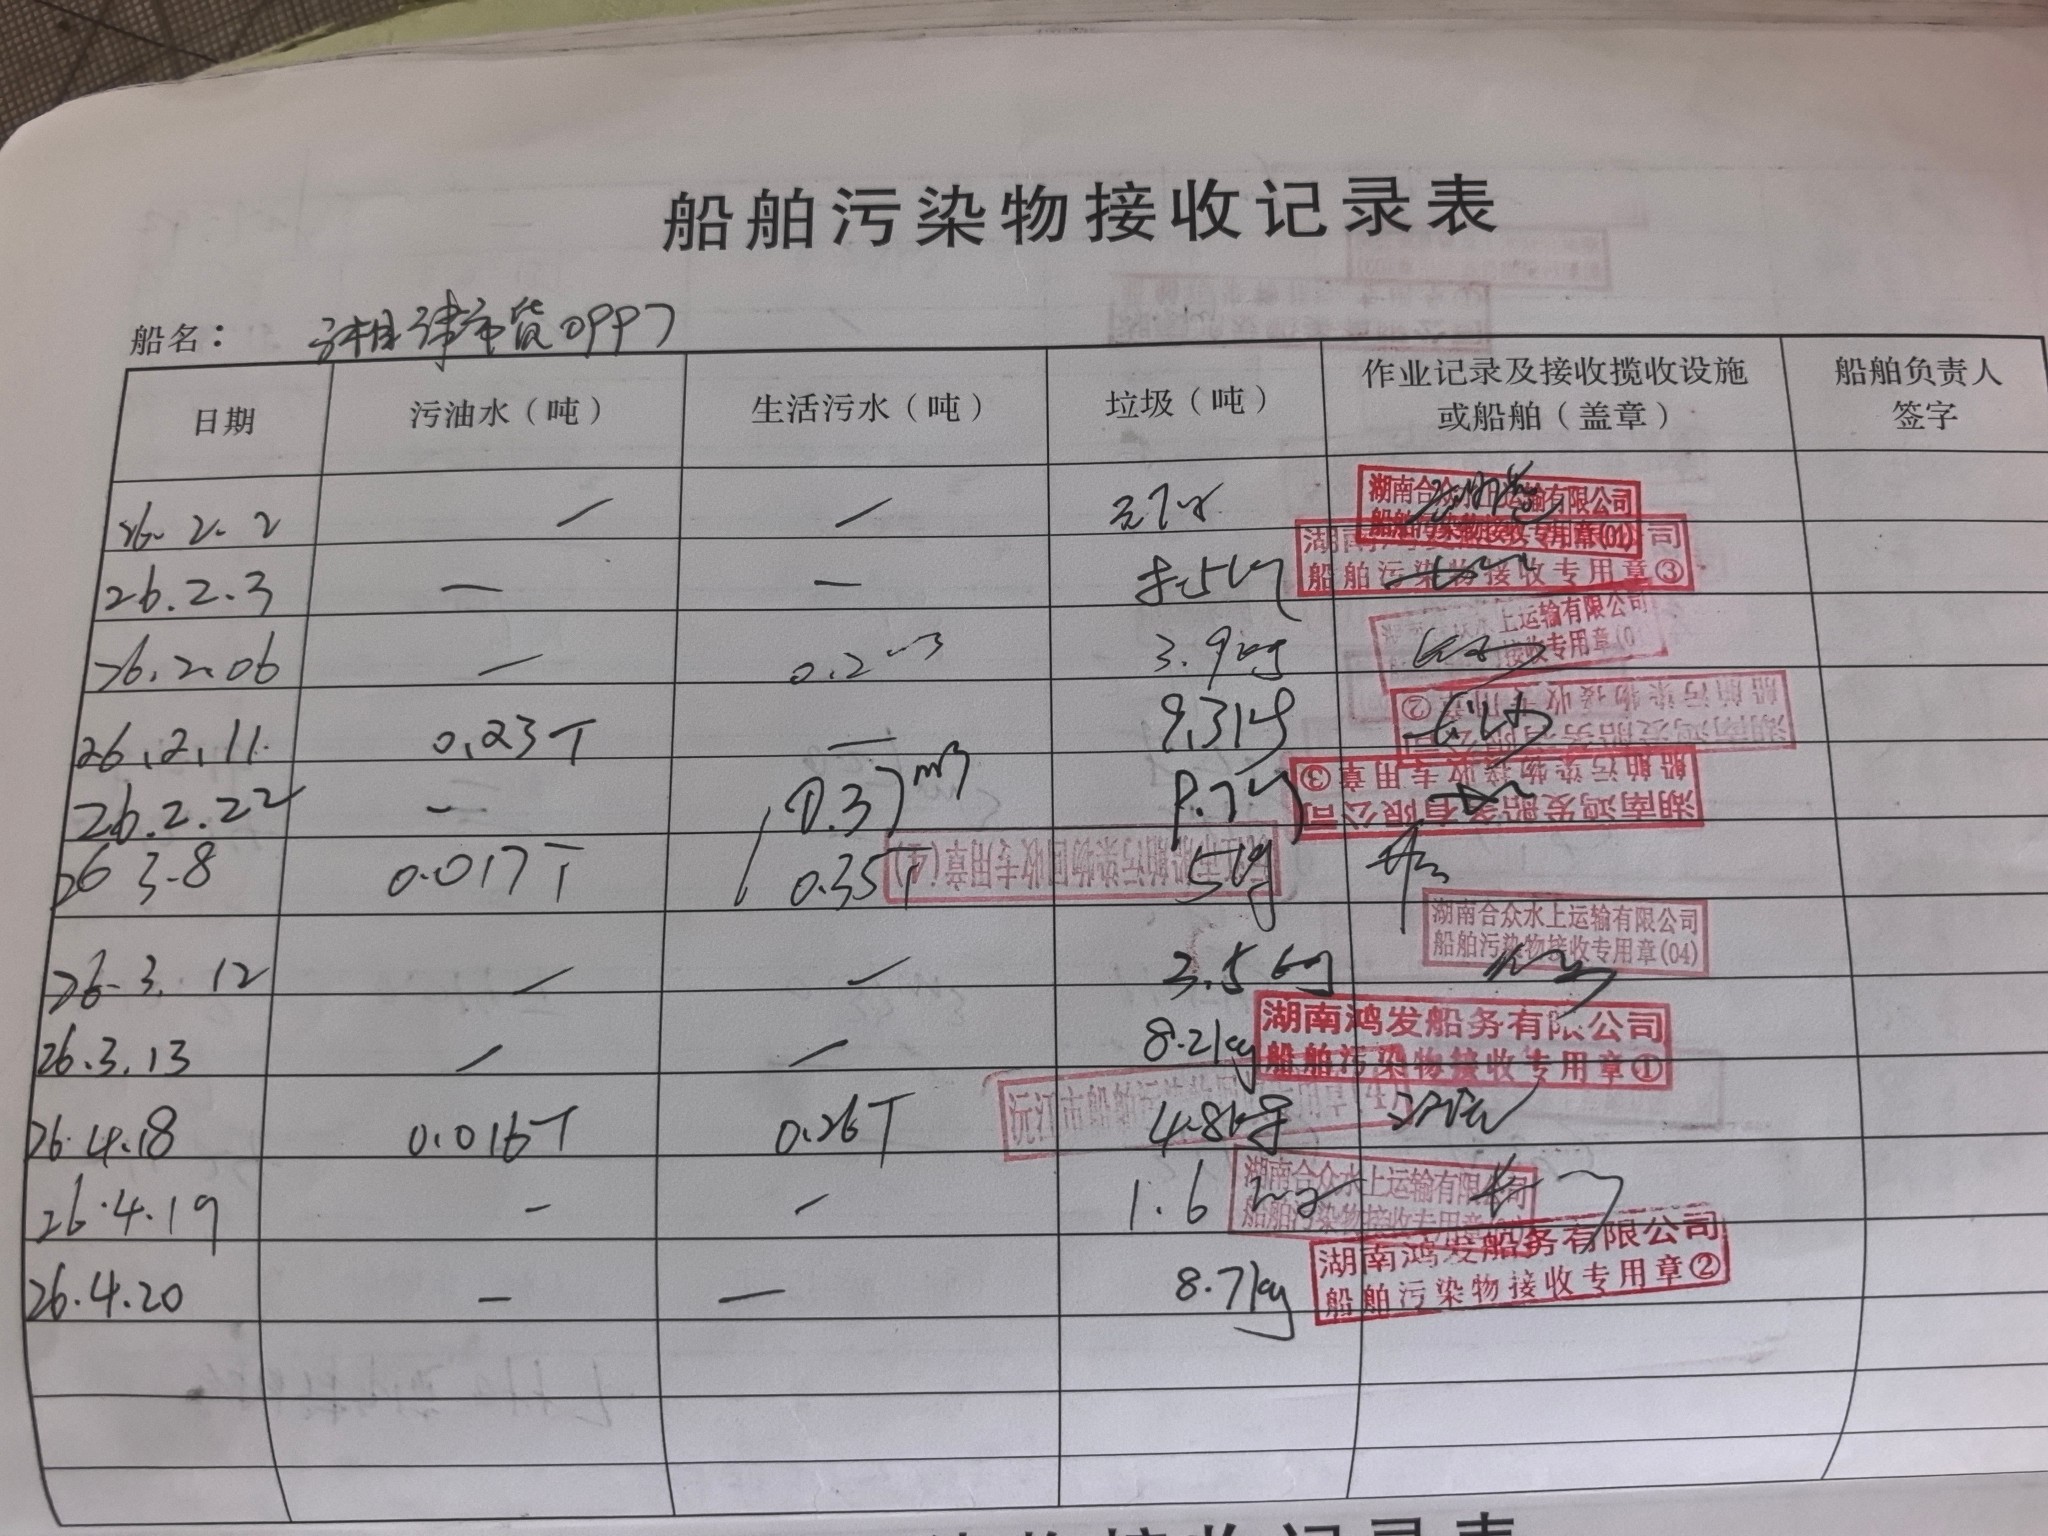 船舶污染物接收记录表
船名： 湘津市货0997
日期 污油水（吨） 生活污水（吨） 垃圾（吨） 作业记录及接收揽收设施或船舶（盖章） 船舶负责人签字
26.2.2 — — 湖南合众水上运输有限公司
船舶污染物接收专用章(01)
26.2.3 — — 船舶污染物接收专用章③
26.2.06 — 0.2m3 3.9kg 水上运输有限公司
接收专用章
26.2.11. 0.23T — 9.3kg 湖南鸿发船务有限公司
船舶污染物接收专用章②
26.2.22 — 0.37m3 湖南鸿发船务有限公司
船舶污染物接收专用章③
26 3.8 0.017T 0.35T 5kg 船舶污染物回收专用章(4)
26.3.12 — — 3.5kg 湖南合众水上运输有限公司
船舶污染物接收专用章(04)
26.3.13 — — 8.2kg 湖南鸿发船务有限公司
船舶污染物接收专用章①
26.4.18 0.016T 0.26T 4.8kg 沅江市船舶污染物
26.4.19 - - 1.6 湖南合众水上运输有限公司
船舶污染物接收专用章
26.4.20 — — 8.7kg 湖南鸿发船务有限公司
船舶污染物接收专用章②